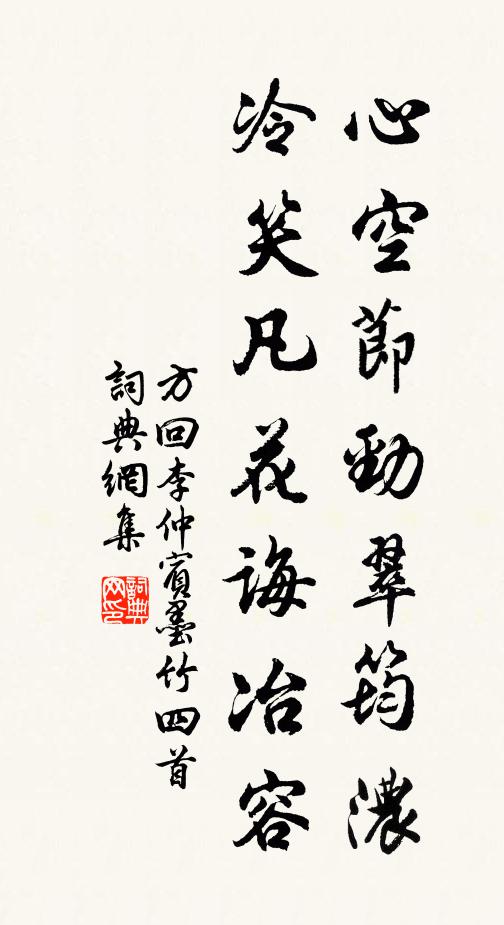 心空節勁翠筠濃
冷笑凡花誨冶容
方回李仲賓墨竹四首
詞典網集
詞典网印